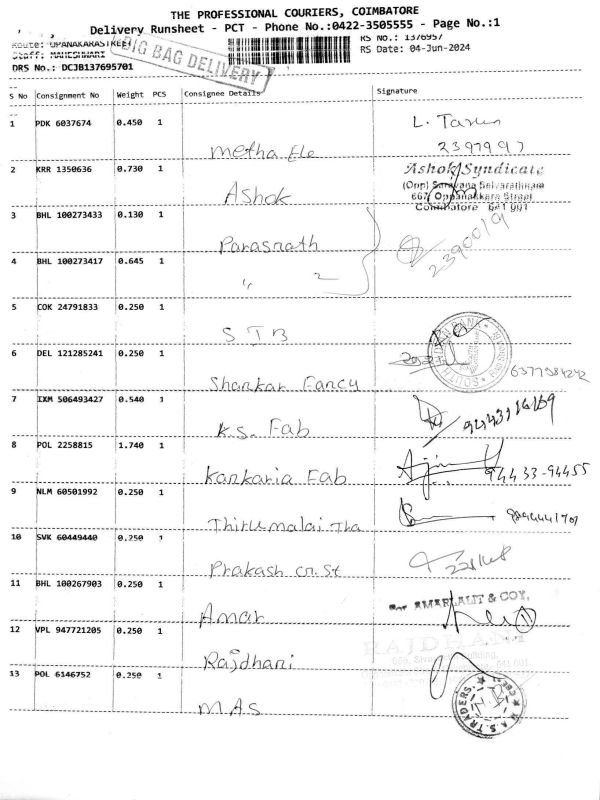 THE PROFESSIONAL COURIERS, COIMBATORE
Delivery Runsheet - PCT - Phone No.:0422-3505555 - Page No.:1
Route: OPANAKARASTREET RS No.: 1376957
Staff: MAHESHWARI RS Date: 04-Jun-2024
DRS No.: DCJB137695701
BIG BAG DELIVERY
S No Consignment No Weight PCS Consignee Details Signature
1 PDK 6037674 0.450 1
Metha Ele
L. Tarun
2397997
2 KRR 1350636 0.730 1
Ashok
Ashok Syndicate
(Opp) Saravana Selvarathinam
667, Oppanakkara Street,
Coimbatore 641 001
3 BHL 100273433 0.130 1
Parasnath
4 BHL 100273417 0.645 1
" 2
5 COK 24791833 0.250 1
S I B
6 DEL 121285241 0.250 1
Shankar Fancy
6377984242
7 IXM 506493427 0.540 1
K.S. Fab
8 POL 2258815 1.740 1
Kankaria Fab
94433-94455
9 NLM 60501992 0.250 1
Thirumalai Tha
10 SVK 60449440 0.250 1
Prakash cr. St
11 BHL 100267903 0.250 1
Amar
For AMARLALIT & COY,
12 VPL 947721205 0.250 1
Rajdhani
RAJDHANI
13 POL 6146752 0.250 1
M.A.S
M.A.S. TRADERS